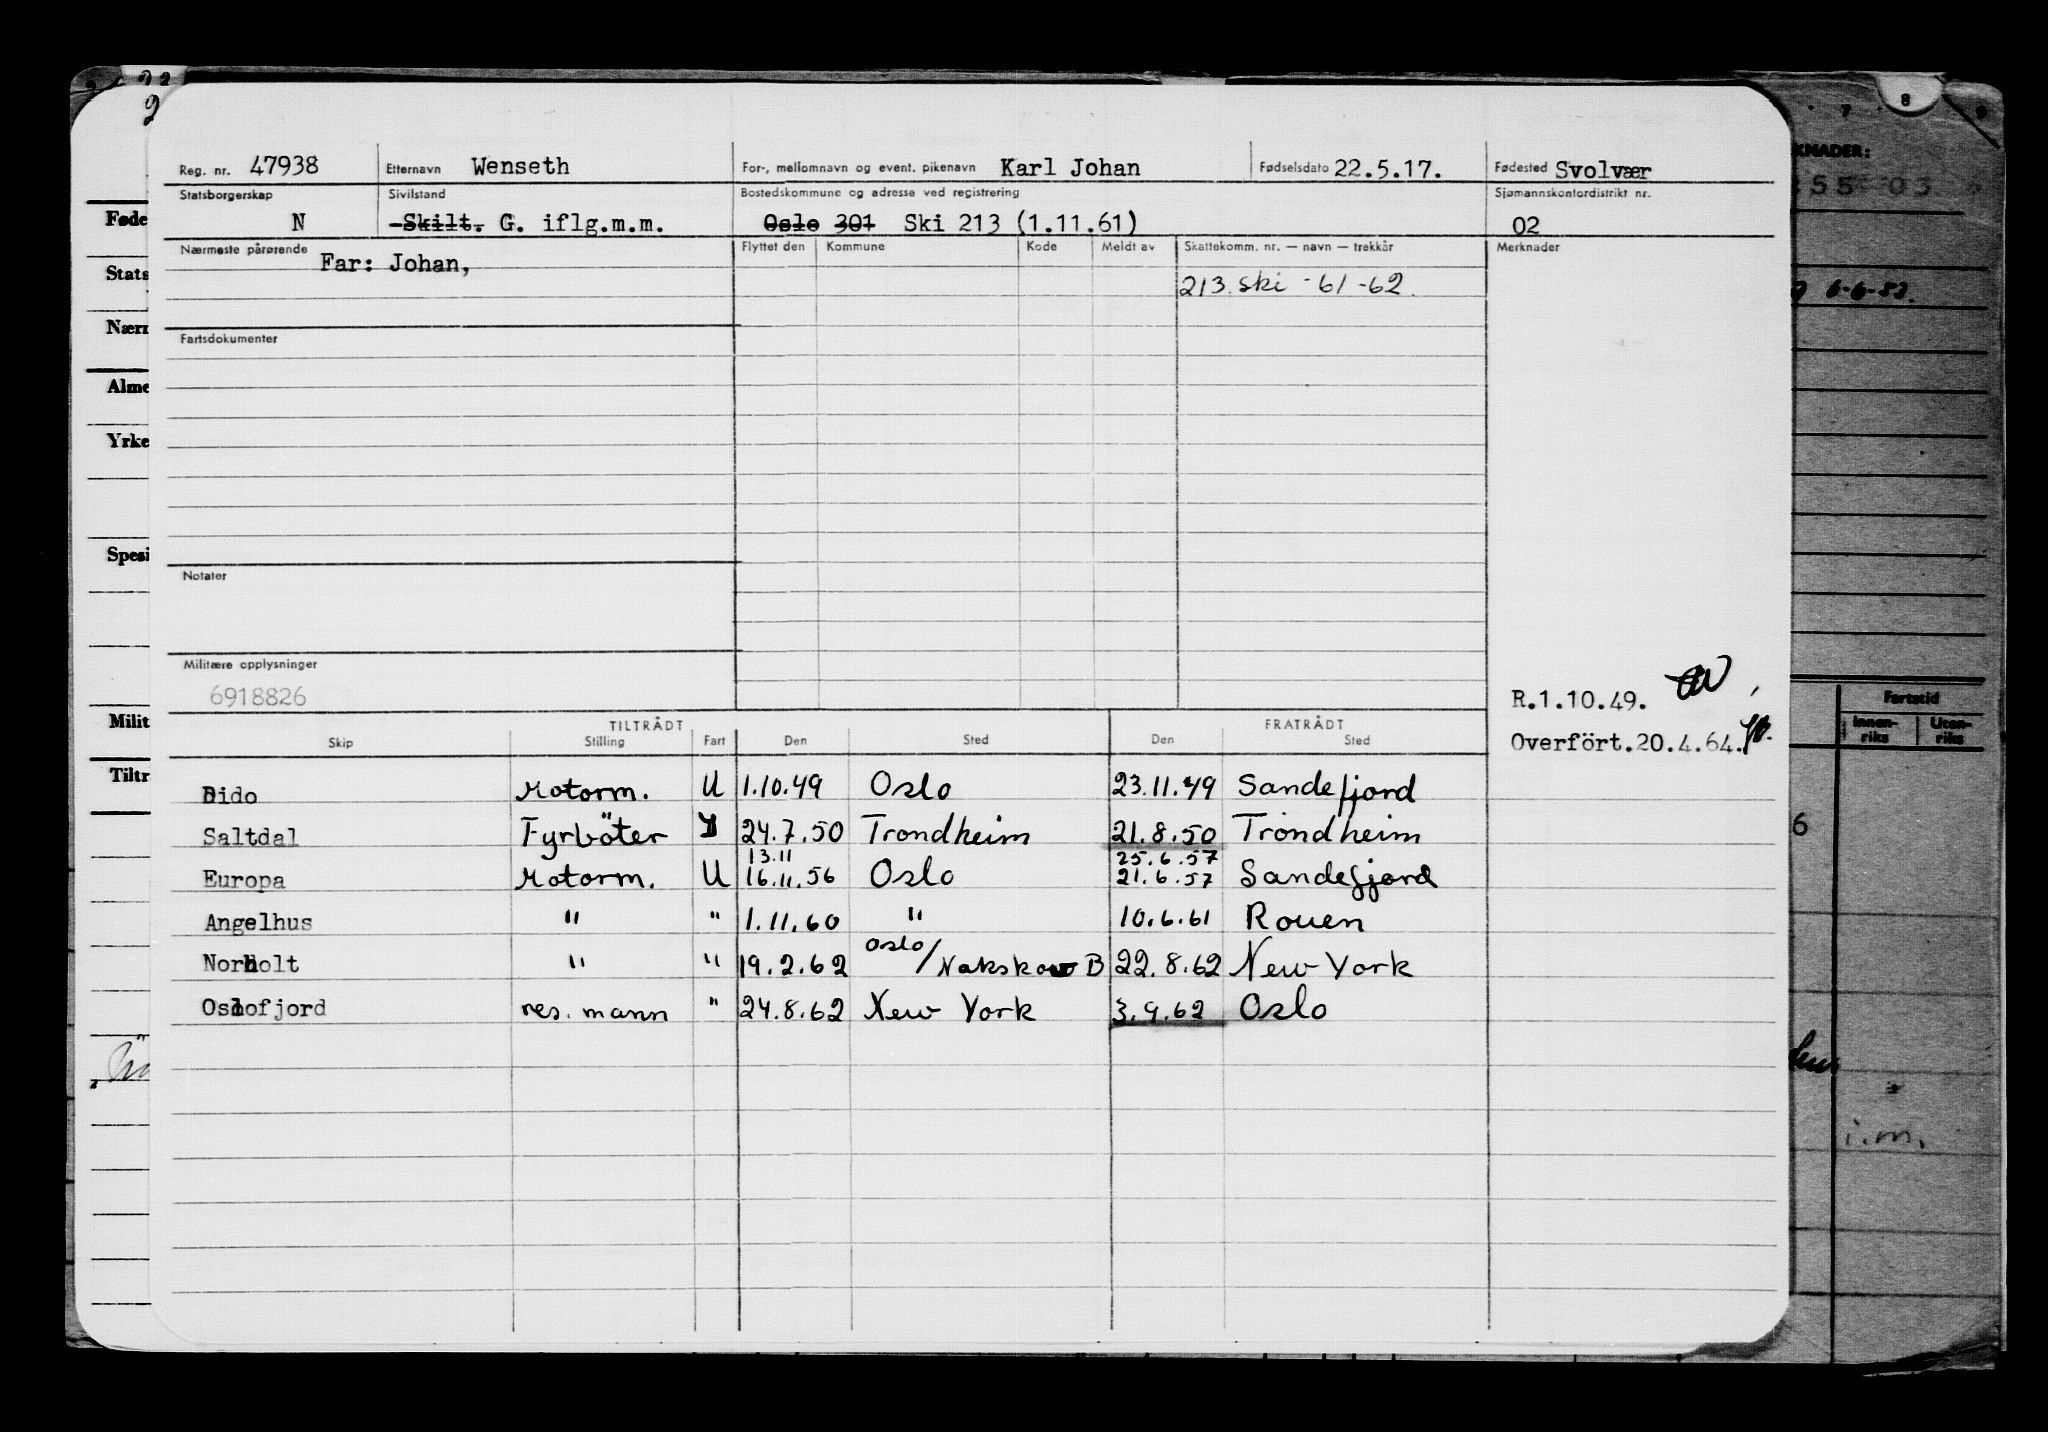 Reg. nr. 47938 Etternavn Wenseth For-, mellomnavn og event. pikenavn Karl Johan Fødselsdato 22.5.17. Fødested Svolvær
Statsborgerskap Sivilstand Bostedskommune og adresse ved registrering Sjømannskontordistrikt nr.
N Skilt. G. iflg.m.m. Oslo 301 Ski 213 (1.11.61) 02
Nærmeste pårørende Flyttet den Kommune Kode Meldt av Skattekomm. nr. — navn — trekkår Merknader
Far: Johan,
213. Ski -61-62.
Fartsdokumenter
Notater
Militære opplysninger
6918826
R.1.10.49.
Overfört.20.4.64.
TILTRÅDT FRATRÅDT
Skip Stilling Fart Den Sted Den Sted
Dido Motorm. U 1.10.49 Oslo 23.11.49 Sandefjord
Saltdal Fyrböter 24.7.50 Trondheim 21.8.50 Trondheim
13.11 25.6.57
Europa Motorm. U 16.11.56 Oslo 21.6.57 Sandefjord
Angelhus " " 1.11.60 " 10.6.61 Rouen
Norholt " " 19.2.62 Oslo/Nakskov B 22.8.62 New York
Oslofjord res. mann " 24.8.62 New York 3.9.62 Oslo
Føde
Stats
Nærn
Alme
Yrke
Spesi
Milit
Tiltr
7 8 9
KNADER:
55 03
6-6-53.
Fartstid
Innen-
riks
Uten-
riks
6
i.m.